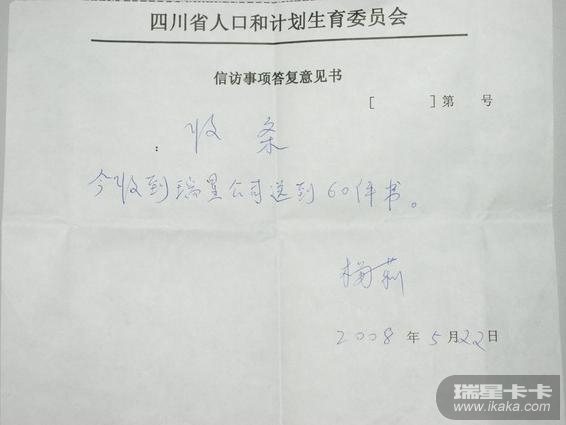 四川省人口和计划生育委员会
信访事项答复意见书
[ ]第 号
收条
:
今收到瑞星公司送到60件书。
梅莉
2008年5月22日
瑞星卡卡
www.ikaka.com